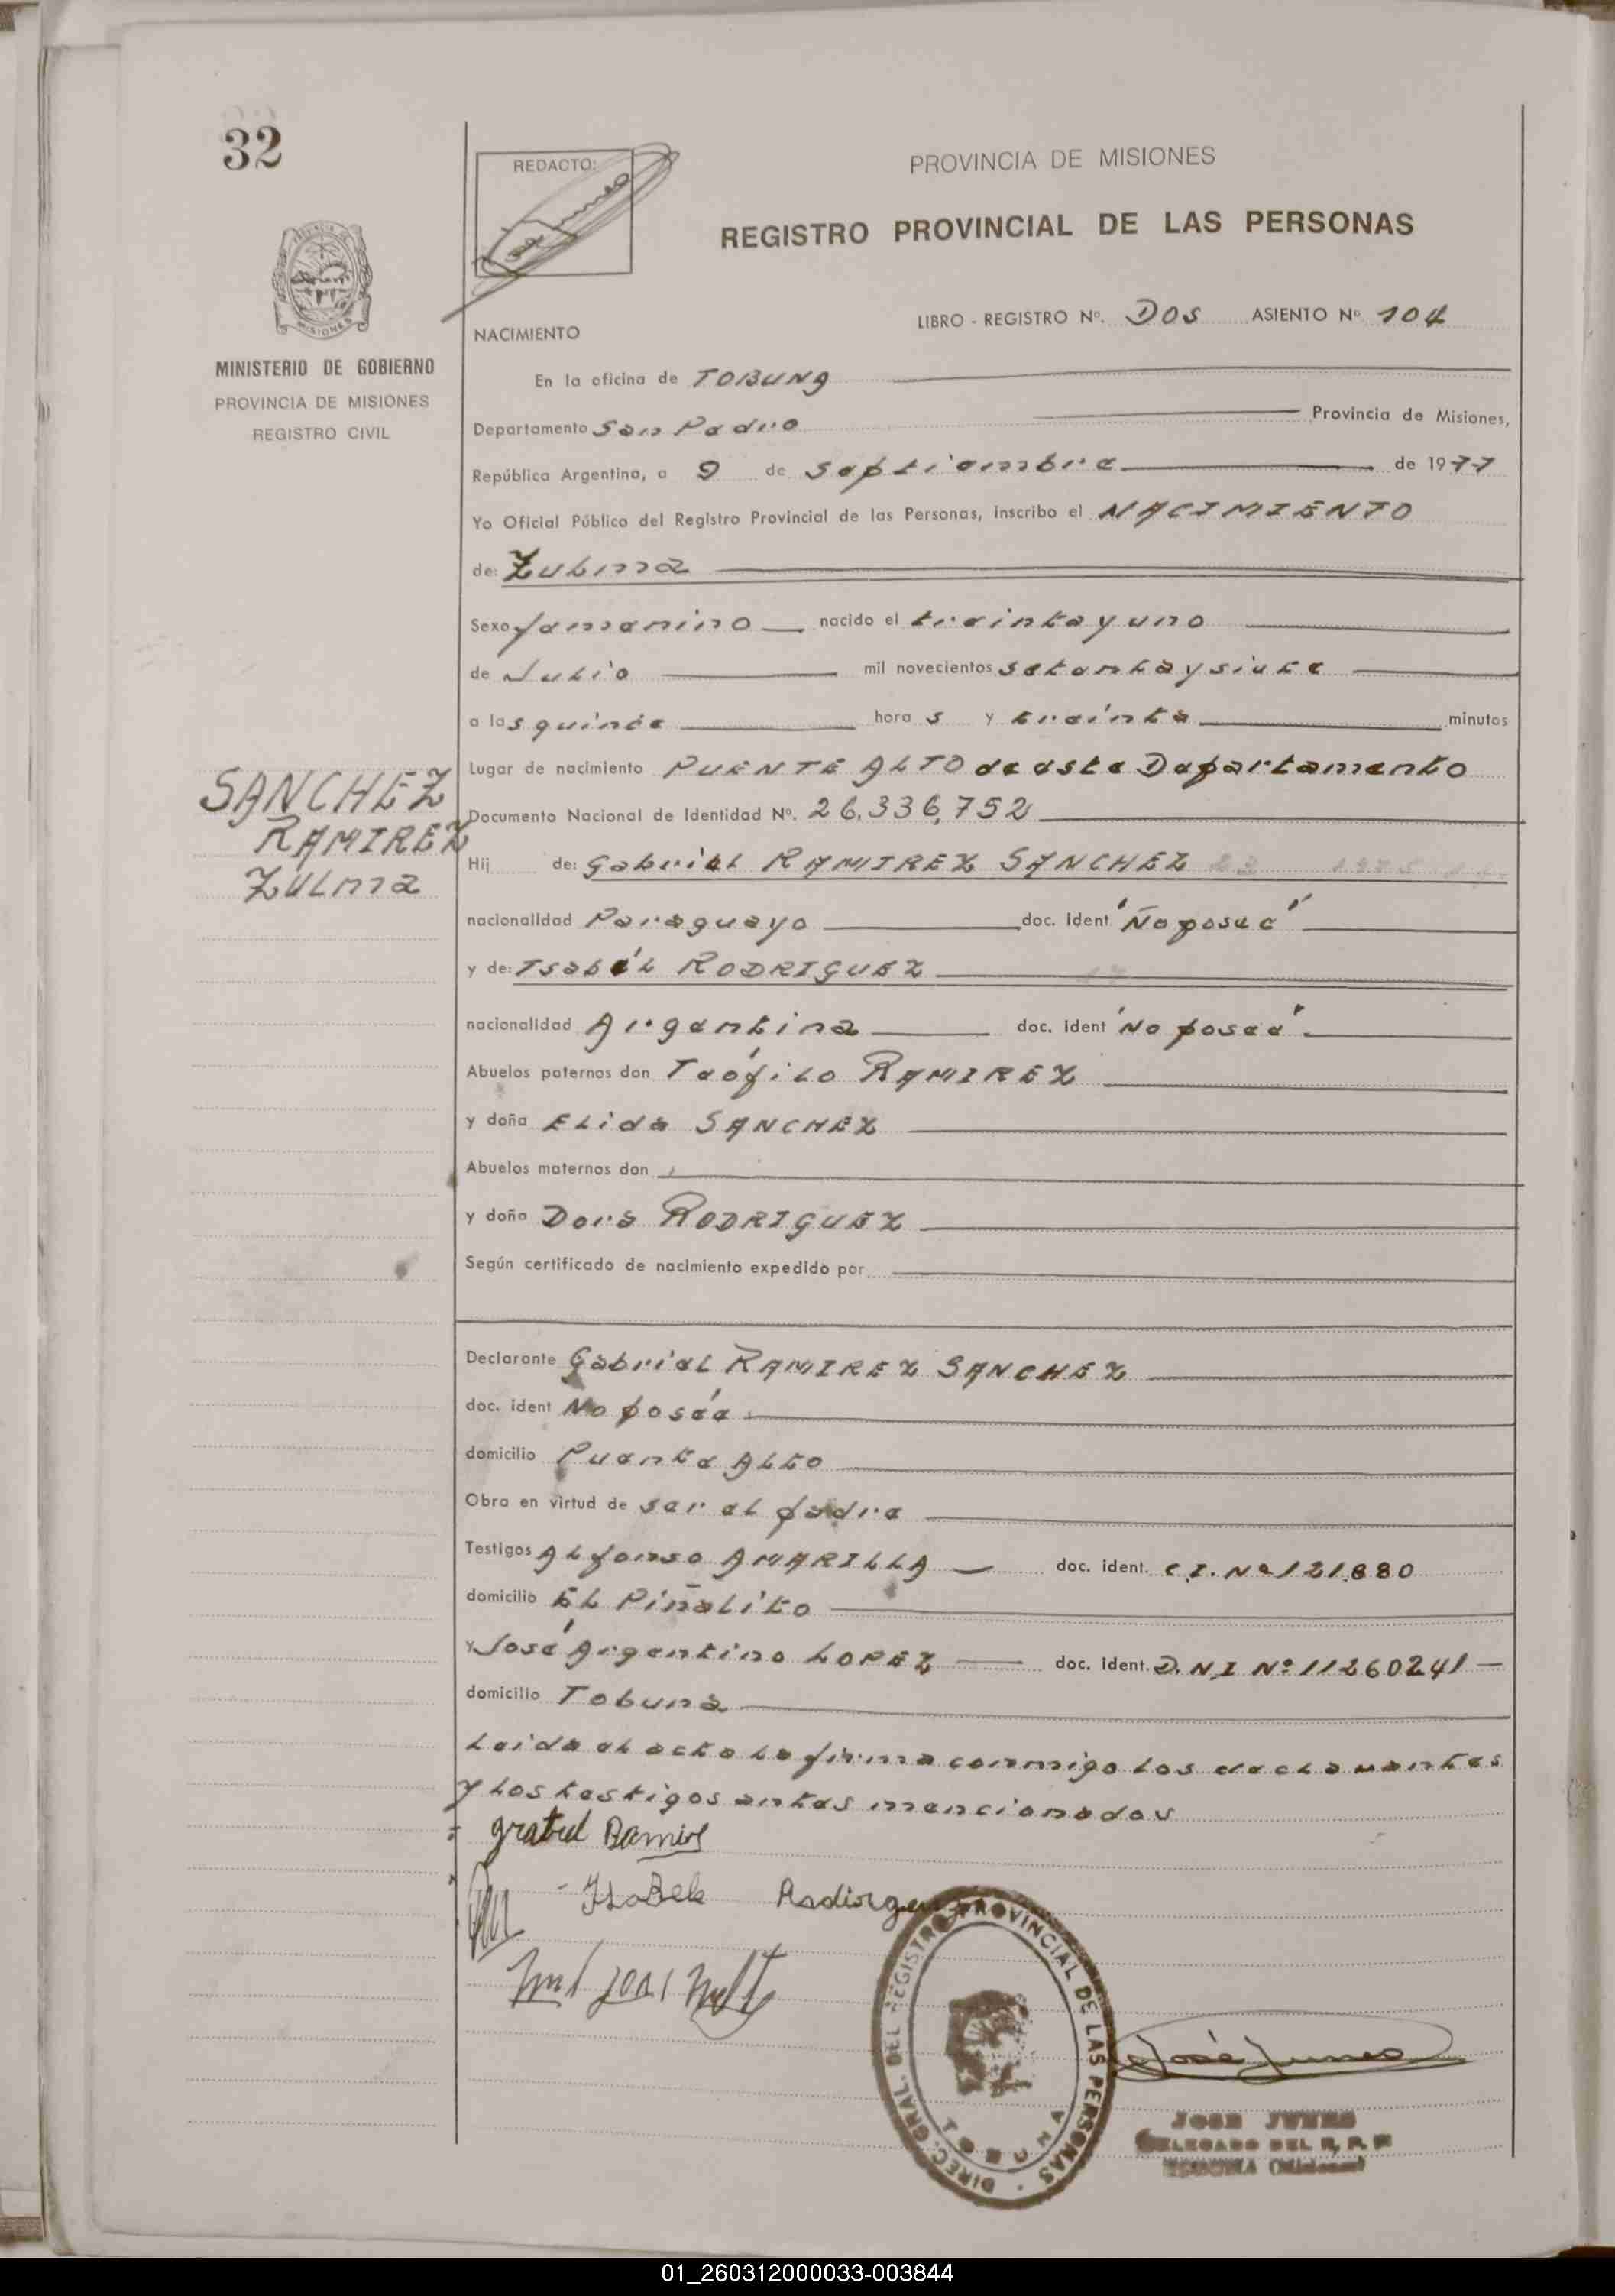 32
REDACTO:
PROVINCIA DE MISIONES
REGISTRO PROVINCIAL DE LAS PERSONAS
MISIONES
MINISTERIO DE GOBIERNO
PROVINCIA DE MISIONES
REGISTRO CIVIL
LIBRO - REGISTRO Nº. DOS ASIENTO Nº 104
NACIMIENTO
En la oficina de TOBUNA
Departamento San Pedro Provincia de Misiones,
República Argentina, a 9 de septiembre de 1977
Yo Oficial Público del Registro Provincial de las Personas, inscribo el NACIMIENTO
de: Zulma
Sexo femenino nacido el treinta y uno
de Julio mil novecientos setenta y siete
a las quince hora s y treinta minutos
Lugar de nacimiento PUENTE ALTO de este Departamento
SANCHEZ
RAMIREZ
Zulma
Documento Nacional de Identidad Nº. 26.336,752
Hij de: Gabriel RAMIREZ SANCHEZ
nacionalidad Paraguayo doc. ident "No posee"
y de: Isabel RODRIGUEZ
nacionalidad Argentina doc. ident "No posee"
Abuelos paternos don Teófilo RAMIREZ
y doña Elida SANCHEZ
Abuelos maternos don
y doña Dora RODRIGUEZ
Según certificado de nacimiento expedido por
Declarante Gabriel RAMIREZ SANCHEZ
doc. ident No posee
domicilio Puente Alto
Obra en virtud de ser el padre
Testigos Alfonso AMARILLA doc. ident. C.I. Nº 121.880
domicilio El Piñalito
y José Argentino LOPEZ doc. ident. D.N.I Nº 11260241
domicilio Tobuna
Leida el acta la firma conmigo los declarantes
y los testigos antes mencionados
Isabel
DIREC. GRAL. DEL REGISTRO PROVINCIAL DE LAS PERSONAS
TOBUNA
José Junes
JOSE JUNES
DELEGADO DEL R. P. P
TOBUNA (Misiones)
01_260312000033-003844